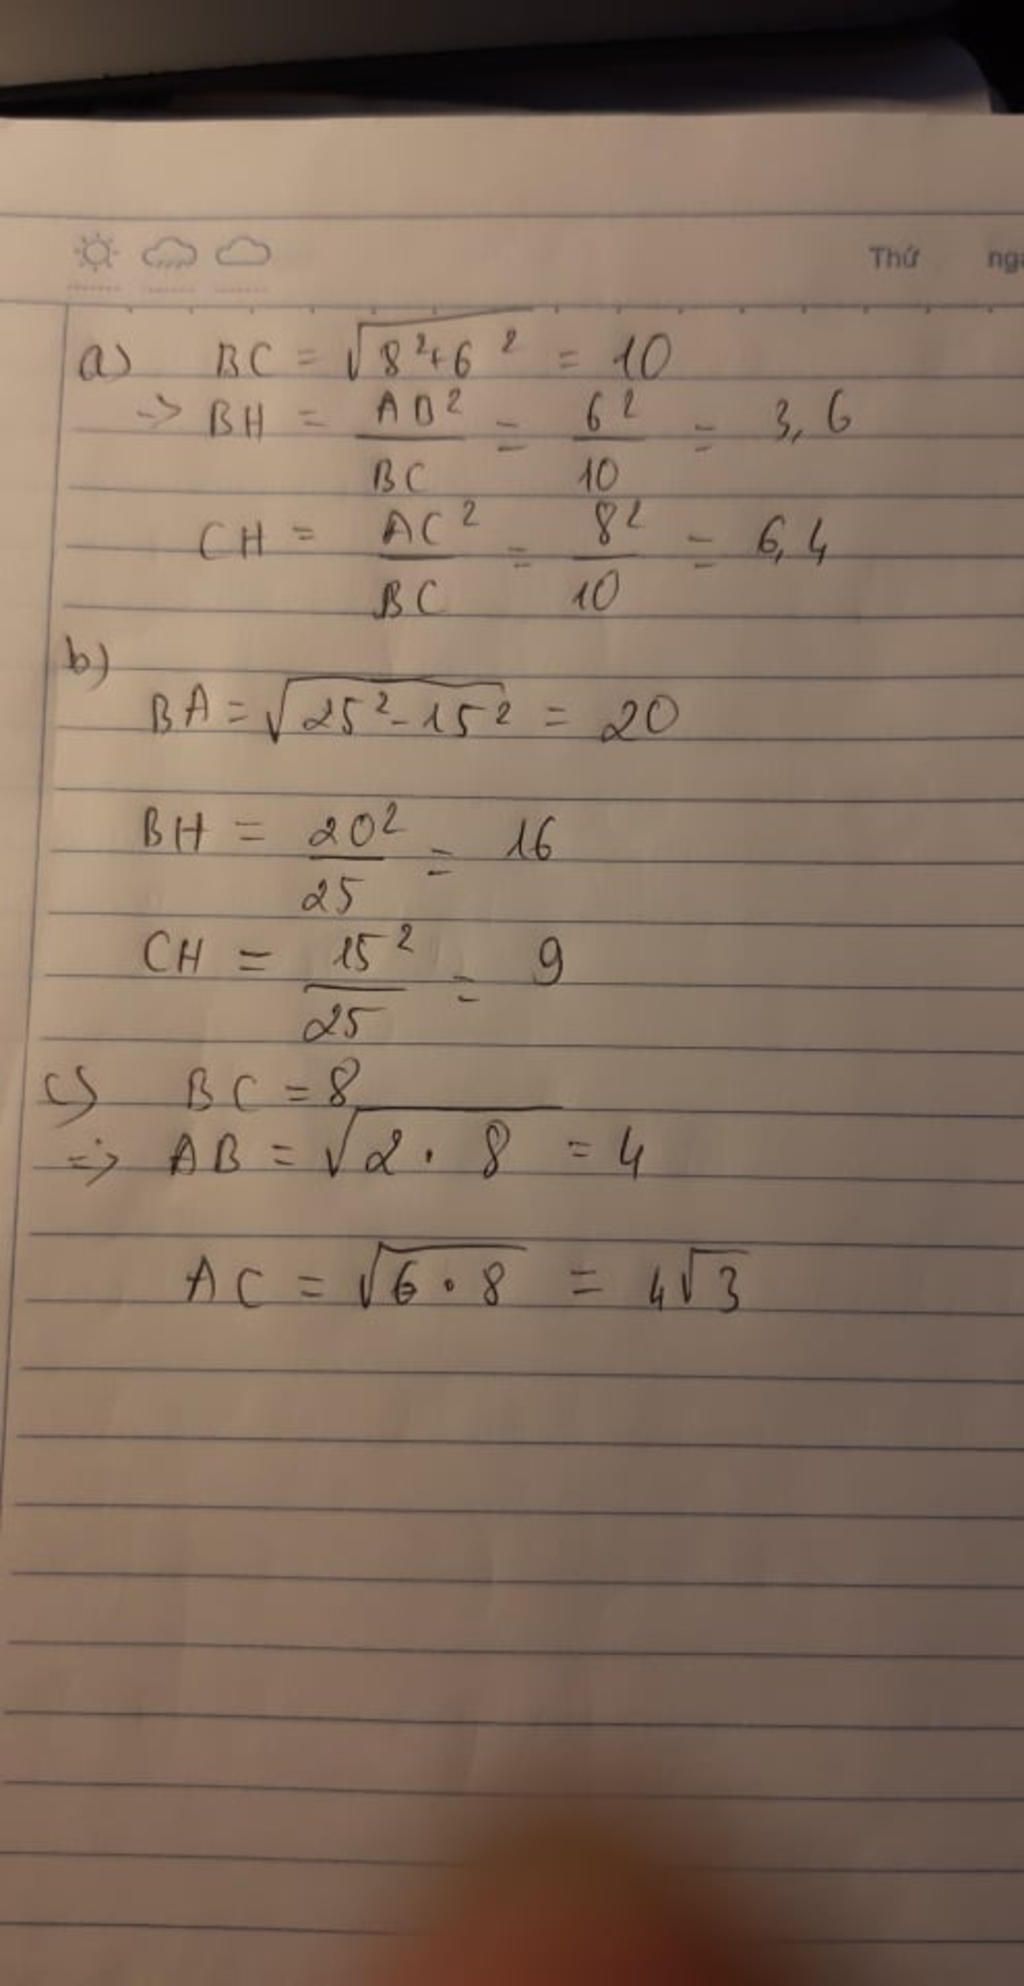 Thứ
a) BC = √(8²+6²) = 10
-> BH = AB²/BC = 6²/10 = 3,6
CH = AC²/BC = 8²/10 = 6,4
b)
BA = √(25²-15²) = 20
BH = 20²/25 = 16
CH = 15²/25 = 9
c) BC = 8
=> AB = √(2.8) = 4
AC = √(6.8) = 4√3